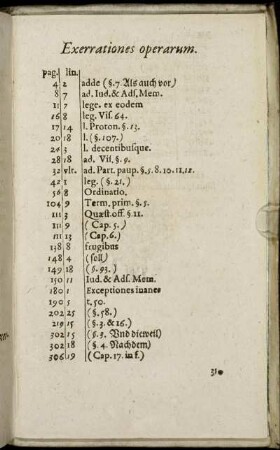 Exerrationes operarum.
pag. lin.
4 2 adde (§. 7. Als auch vor)
8 7 ad. Iud. & Adſ. Mem.
11 7 lege. ex eodem
16 8 leg. Viſ. 64.
17 14 l. Proton. §. 13.
20 18 l. (§. 107.)
24 3 l. decentibuſque.
28 18 ad. Viſ. §. 9.
32 vlt. ad. Part. paup. §. 5. 8. 10. 11. 12.
42 1 leg. (§. 21.)
56 8 Ordinatio.
104 9 Term. prim. §. 5.
111 3 Quæſt. off. §. 11.
111 9 (Cap. 5.)
111 13 (Cap. 6.)
138 8 frugibus
148 4 (ſoll)
149 18 (§. 93.)
150 11 Iud. & Adſ. Mem.
180 1 Exceptiones inanes
190 5 t. 50.
202 25 (§. 58.)
219 15 (§. 3. & 16.)
302 15 (§. 3. Vnd dieweil)
302 18 (§. 4. Nachdem)
306 19 (Cap. 17. in f.)